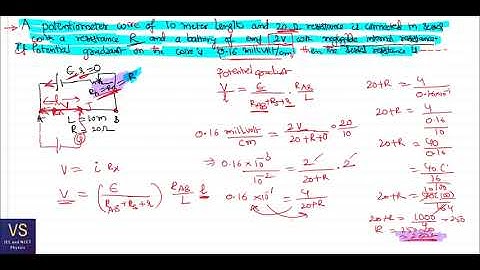 A potentiometer wire of 10 meter length and 20 Ω resistance is connected in series
with a resistance R and a battery of emf 2V with negligible internal resistance
If Potential gradient on the wire is 0.16 millivolt/cm then the
L = 10m
R = 20Ω
V = i Rx
V = (ε / (R_AB + R_s + r)) R_AB / L l
Potential gradient
V/l = ε / (R_AB + R_s + r) · R_AB / L
0.16 millivolt/cm = 2V / (20+R+0) · 20/10
⇒ 0.16 × 10^-3 / 10^-2 = 2 / (20+R) · 2
0.16 × 10^-1 = 4 / (20+R)
20+R = 4 / (0.16 × 10^-1)
20+R = 4 / (0.16/10)
20+R = 40 / 0.16
20+R =
20+R =
20+R = 1000/4 = 250
VS
JEE and NEET
Physics